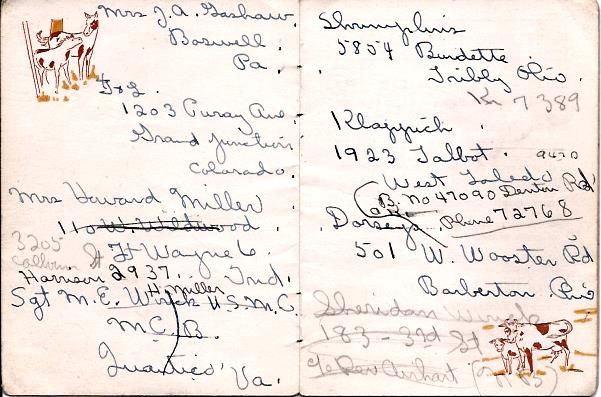 Mrs J. A. Gashaw.
Boswell.
Pa.
1203 Ouray Ave.
Grand Junction
Colorado.
Mrs Howard Miller
110 W. Wildwood
3205
Calhoun St
Ft Wayne 6.
Harrison 2937. Ind.
H Miller
Sgt M. E. Winck U.S.M.C.
M.C.B.
Quantico Va.
Shrumplins
5854 Burdette.
Tribly Ohio.
Kn 7389
Klappich
1923 Talbot.
West Toledo
B. No 47090 Denton Rd
Dorseys. Phone 72768
501 W. Wooster Rd
Barberton Ohio
Sheridan Winck
183 - 3rd St
c/o Rev Airhart